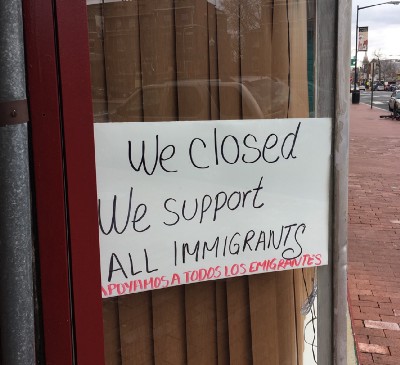 We closed
We support
ALL IMMIGRANTS
APOYAMOS A TODOS LOS EMIGRANTES